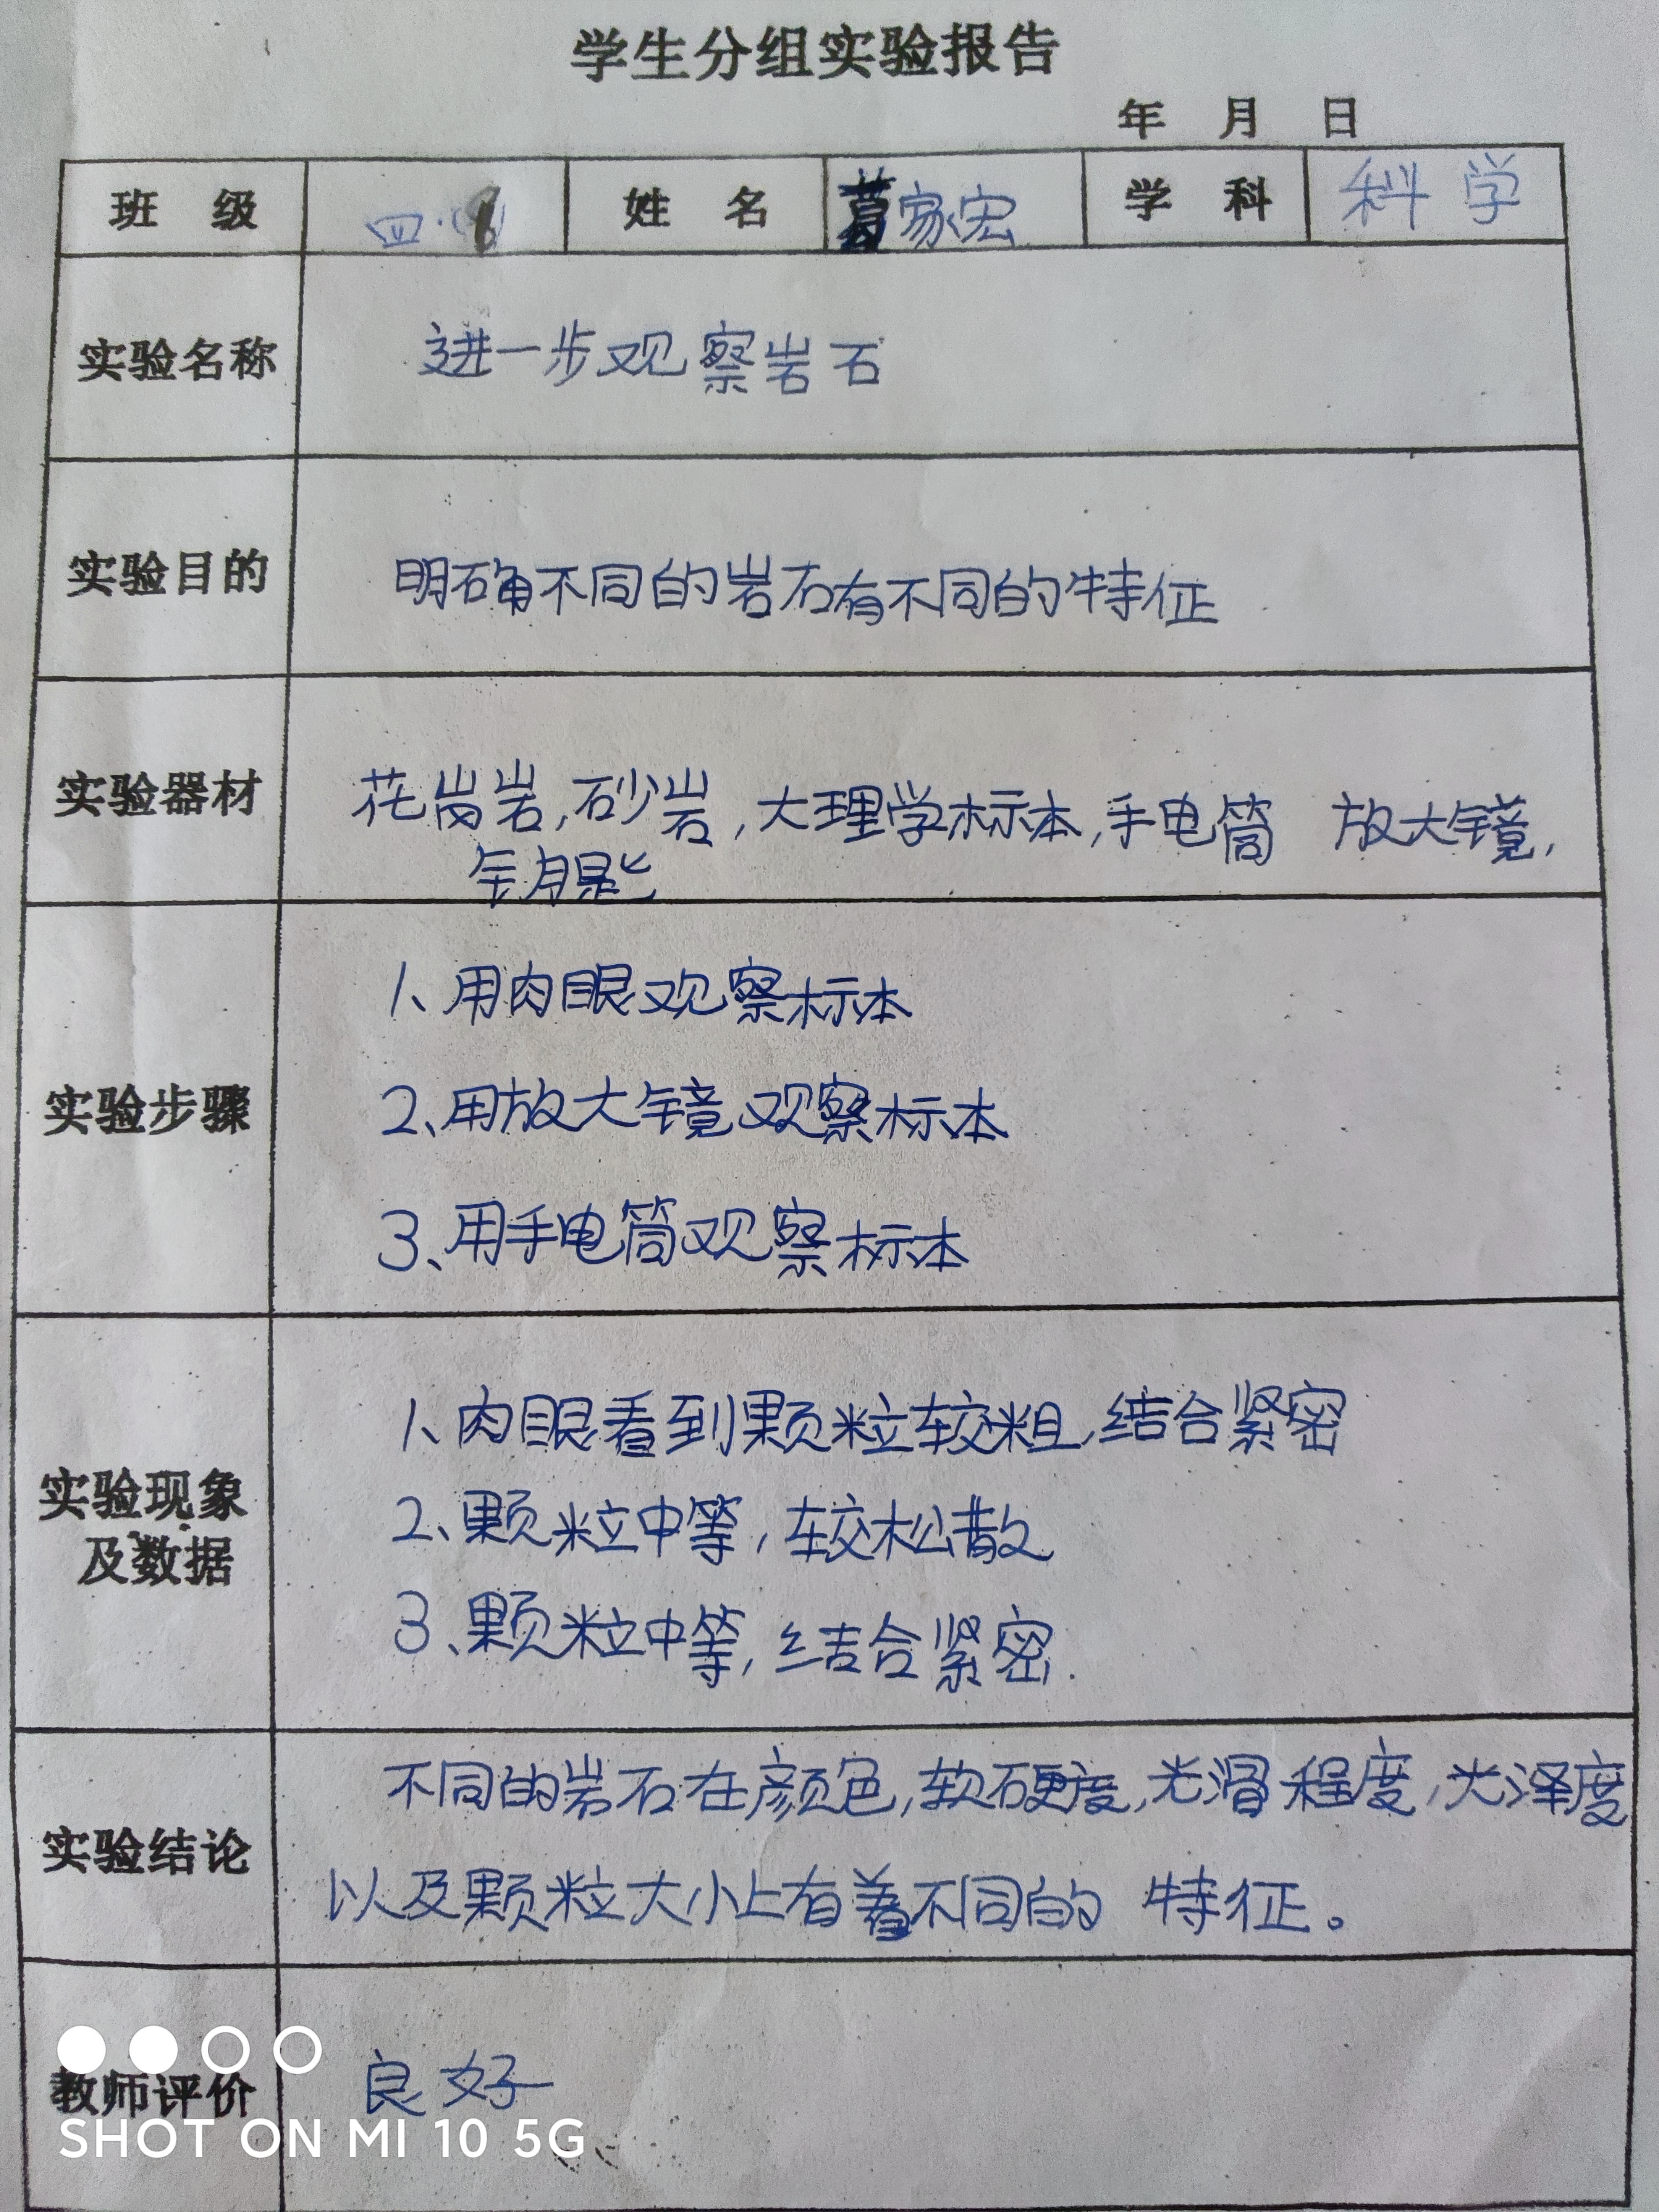 学生分组实验报告
年 月 日
班 级 四. 姓 名 葛家宏 学 科 科学
实验名称 进一步观察岩石
实验目的 明确不同的岩石有不同的特征
实验器材 花岗岩,砂岩,大理学标本,手电筒 放大镜,
钥匙
实验步骤
1、用肉眼观察标本
2、用放大镜观察标本
3、用手电筒观察标本
实验现象
及数据
1、肉眼看到颗粒较粗,结合紧密
2、颗粒中等,较松散
3、颗粒中等,结合紧密.
实验结论
不同的岩石在颜色,软硬度,光滑程度,光泽度
以及颗粒大小上有着不同的特征。
教师评价 良好
SHOT ON MI 10 5G